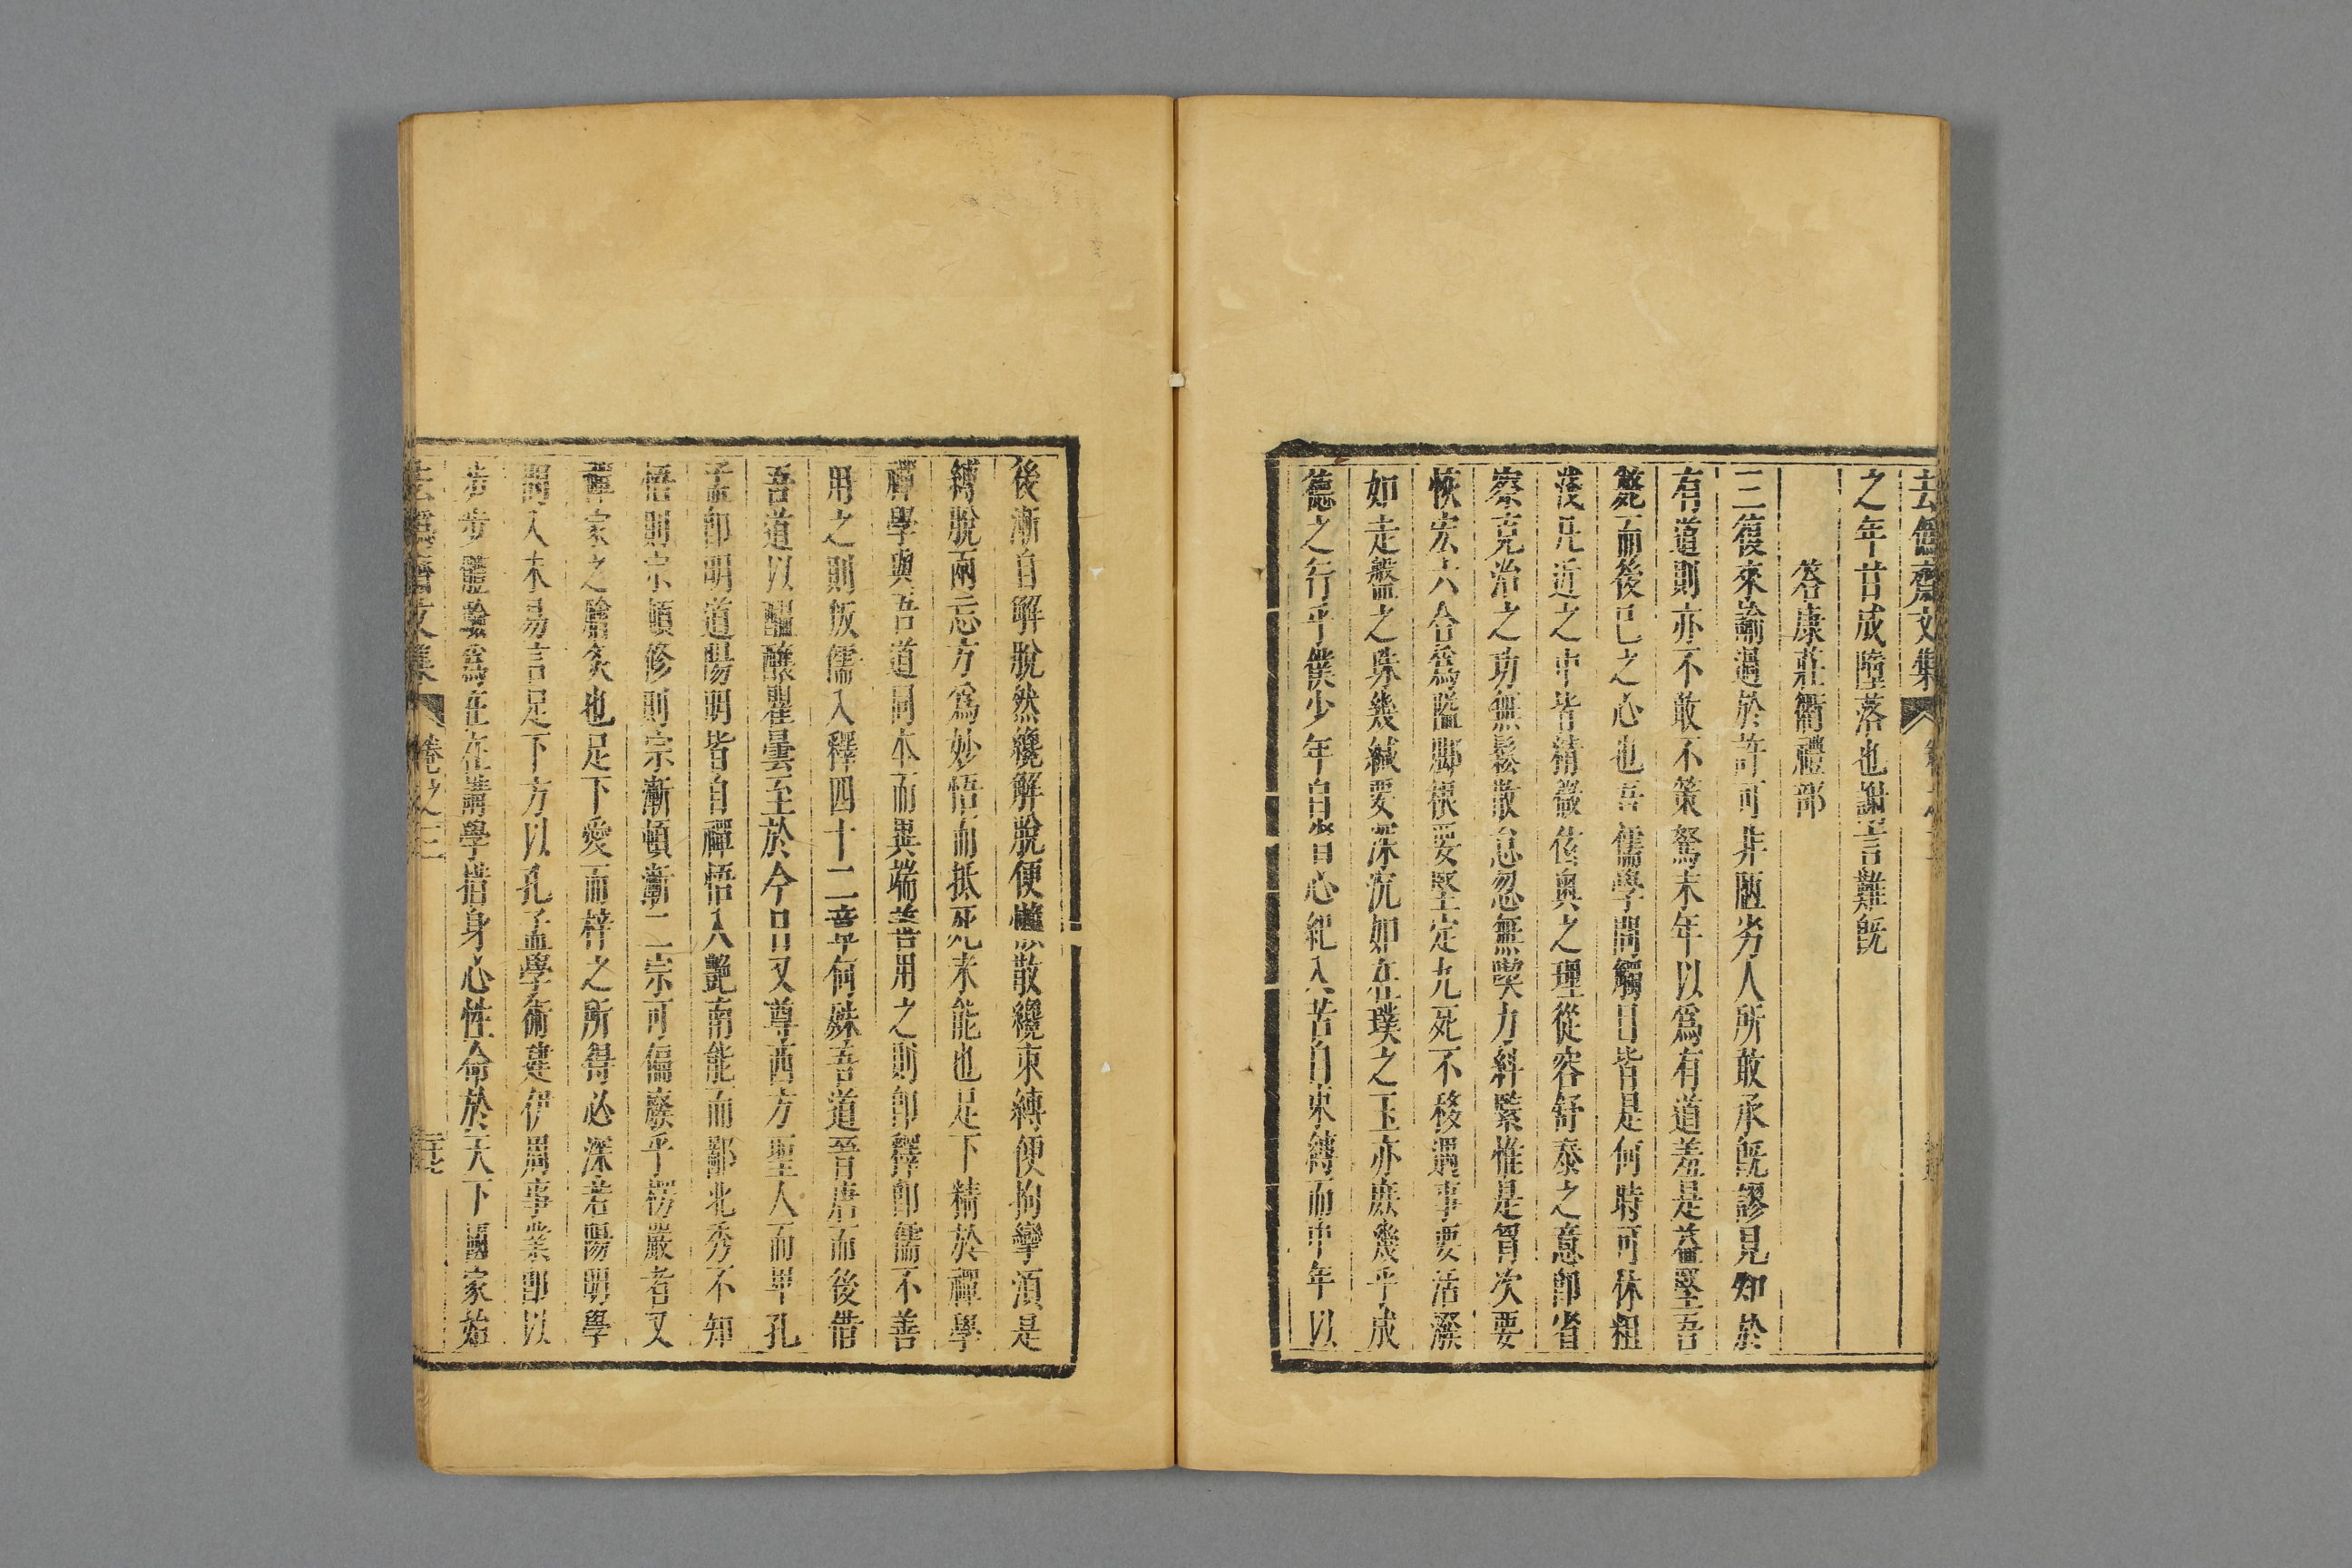 去僞齋文集
之年甘成墮落也謝言難旣
答康莊衢禮部
三復來諭過於許可非陋劣人所敢承旣謬見知於
有道則亦不敢不策駑末年以爲有道羞是益堅吾
斃而後已之心也吾儒學問觸目皆是何時可休粗
淺凡近之中皆精微侅奧之理從容舒泰之意卽省
察克治之功無鬆散怠忽無喫力糾緊惟是胷次要
恢宏六合爲隘脚根要堅定九死不移遇事要活潑
如走盤之珠幾緘要深沉如在璞之玉亦庶幾乎成
德之行乎僕少年自 心紀入苦自束縛而中年以
後漸自解脫然纔解脫便 散纔束縛便拘攣須是
縛脫兩忘方爲妙悟而抵死未能也足下精於禪學
禪學與吾道同本而異端善用之則卽釋卽儒不善
用之則叛儒入釋四十二章何殊吾道晉唐而後借
吾道以醞釀瞿曇至於今日又尊西方聖人而卑孔
孟卽明道陽明皆自禪悟入艷南能而鄙北秀不知
悟則宗頓修則宗漸頓漸二宗可偏廢乎楞嚴者又
禪家之膾炙也足下愛而梓之所得必深若陽明學
問入未易言足下方以孔孟學術建伊周事業卽以
步步體驗爲在在講學措身心性命於天下國家始
去僞齋文集
卷之三